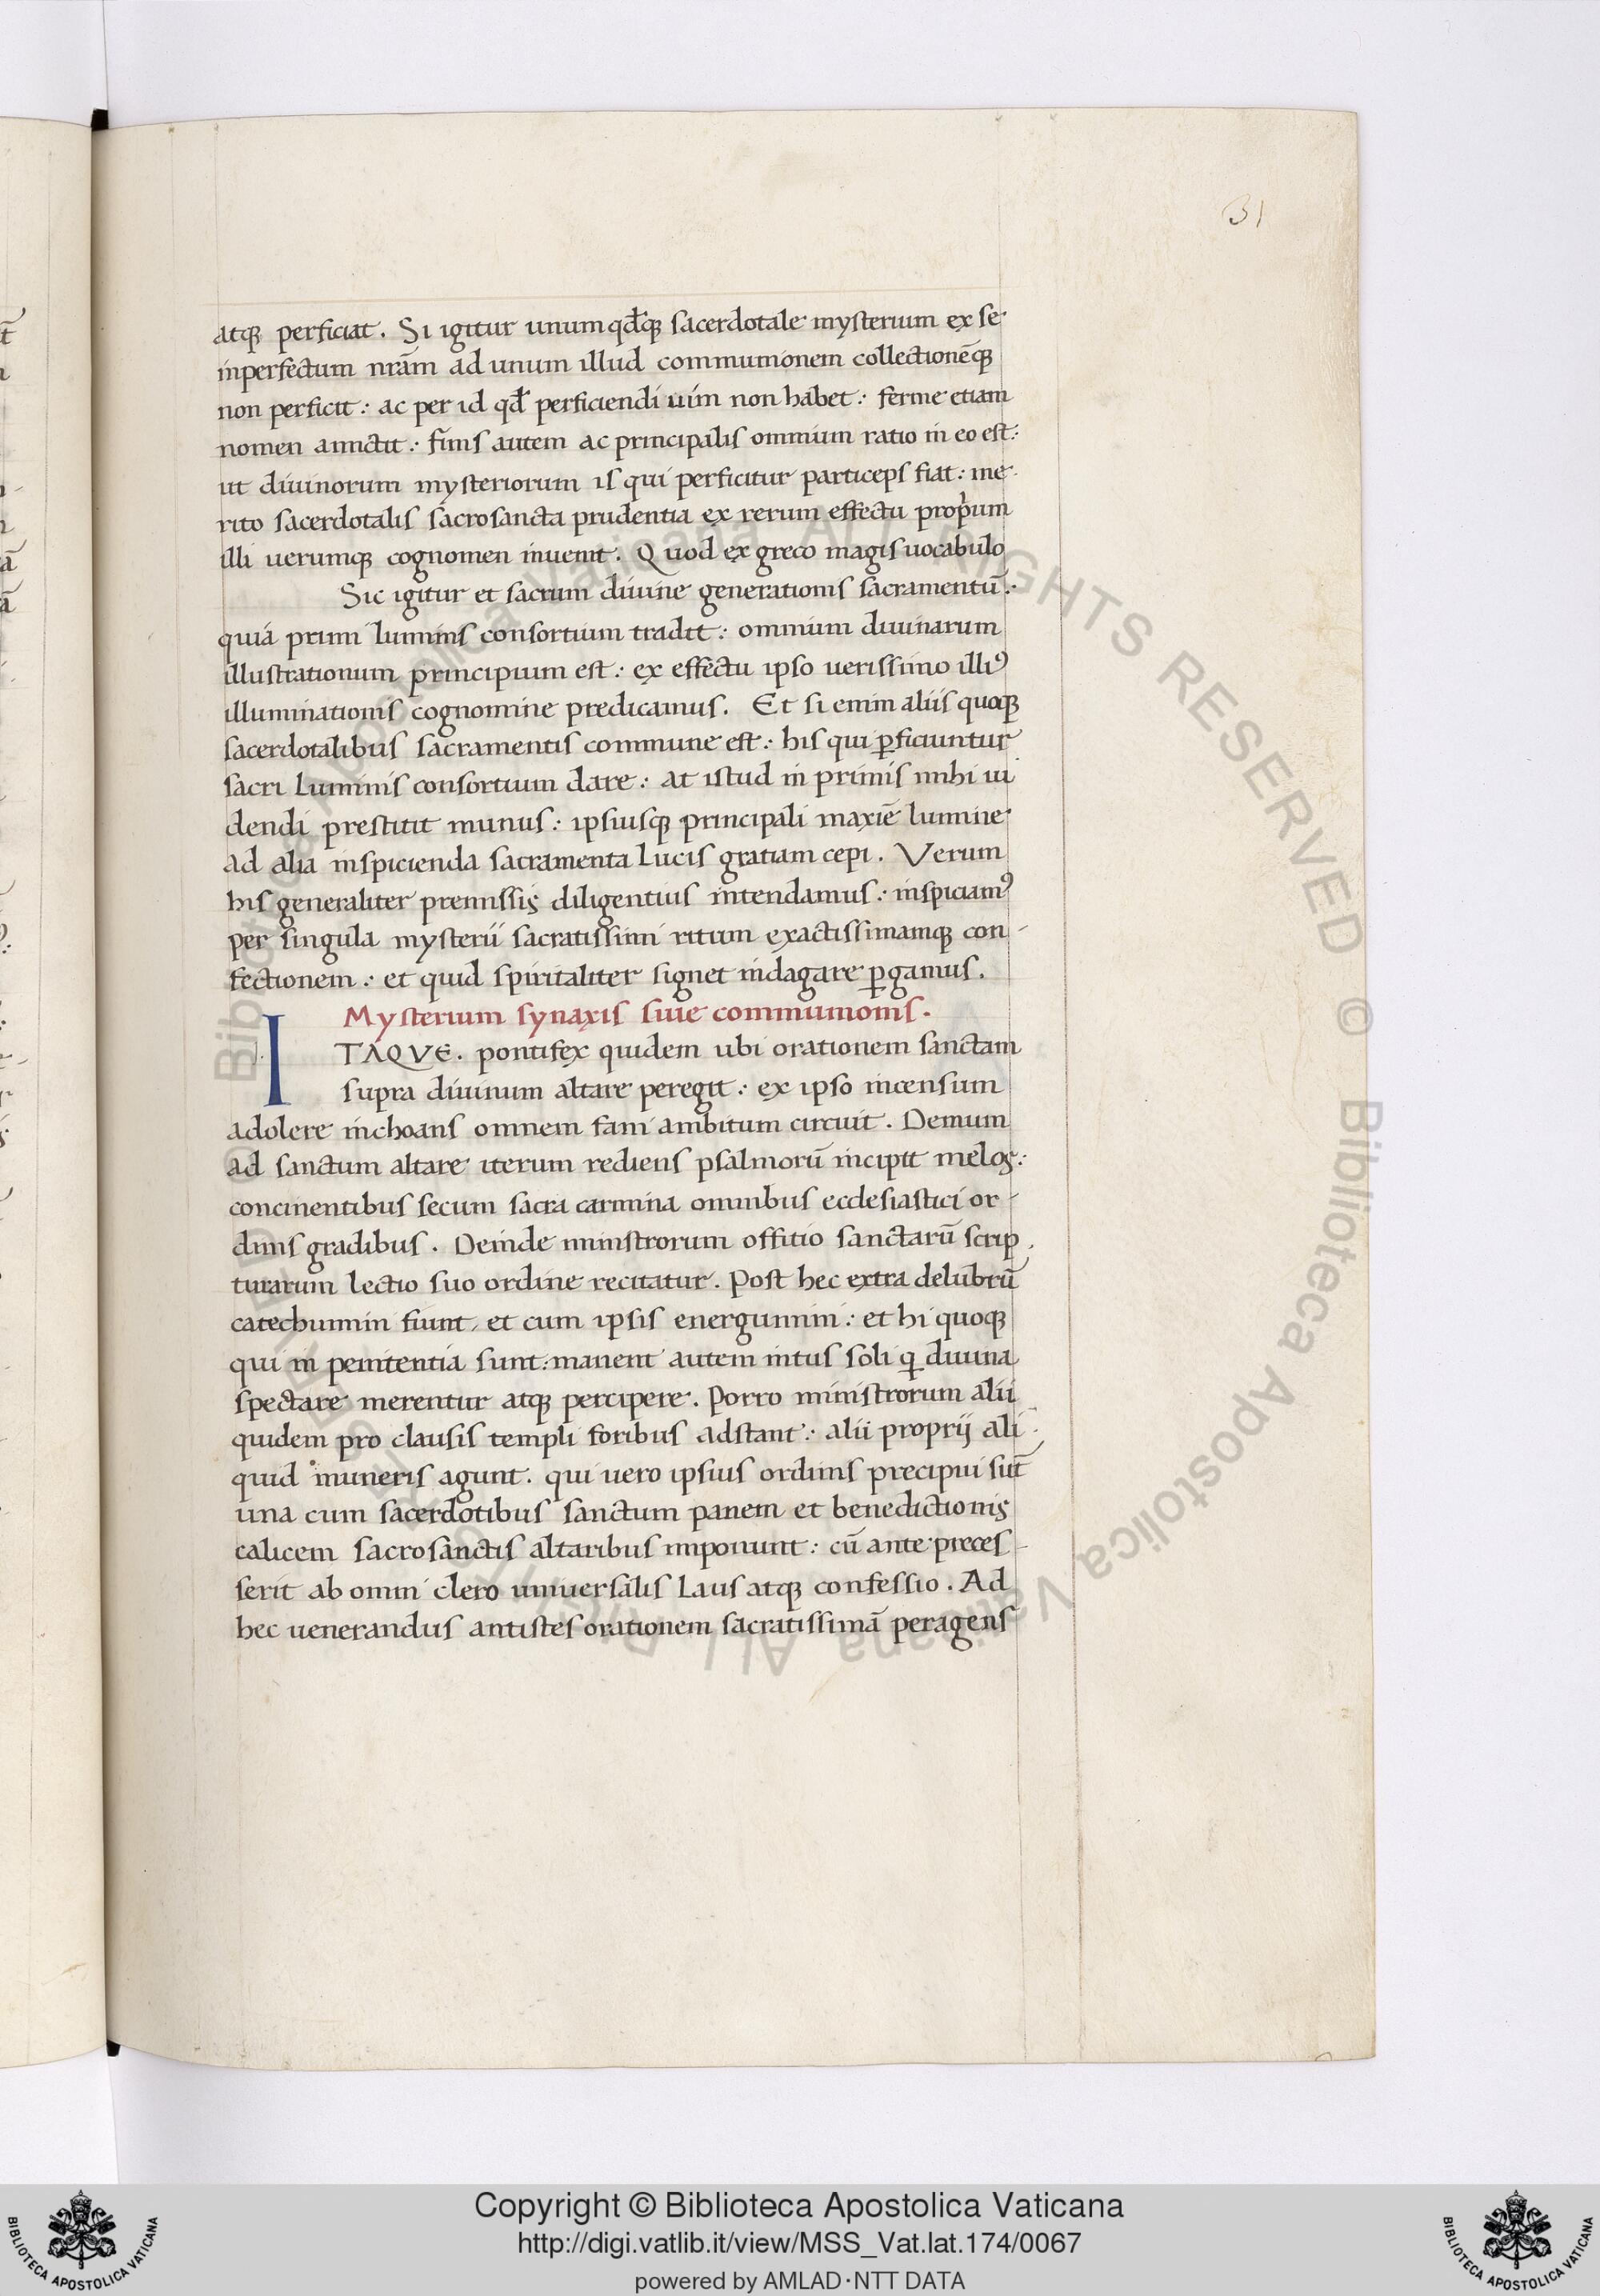 31
atq̃ perficiat. Si igitur unumqđq̃ sacerdotale mysterium ex se
inperfectum nr̃am ad unum illud communionem collectionẽq̃
non perficit: ac per id qđ perficiendi uim non habet: ferme etiam
nomen amictit: finis autem ac principalis omnium ratio in eo est:
ut diuinorum mysteriorum is qui perficitur particeps fiat: me
rito sacerdotalis sacrosancta prudentia ex rerum effectu proprium
illi uerumq̃ cognomen inuenit. Quod ex greco magis uocabulo
Sic igitur et sacrum diuine generationis sacramentũ:
quia primi luminis consortium tradit: omnium diuinarum
illustrationum principium est: ex effectu ipso uerissimo illiꝰ
illuminationis cognomine predicamus. Et si enim aliis quoq̃
sacerdotalibus sacramentis commune est: his qui ꝑficiuntur
sacri luminis consortium dare: at istud in primis mihi ui
dendi prestitit munus: ipsiusq̃ principali maxiẽ lumine
ad alia inspicienda sacramenta lucis gratiam cepi. Verum
his generaliter premissis diligentius intendamus: inspiciamꝰ
per singula mysterii sacratissimi ritum exactissimamq̃ con-
fectionem: et quid spiritaliter signet indagare ꝑgamus.
Mysterium synaxis siue communionis.
ITAQVE. pontifex quidem ubi orationem sanctam
supra diuinum altare peregit: ex ipso incensum
adolere inchoans omnem fani ambitum circuit. Demum
ad sanctum altare iterum rediens psalmorũ incipit melos:
concinentibus secum sacra carmina omnibus ecclesiastici or-
dinis gradibus. Deinde ministrorum offitio sanctarũ scrip
turarum lectio suo ordine recitatur. Post hec extra delubrũ
catechumini fiunt, et cum ipsis energumini: et hi quoq̃
qui in penitentia sunt: manent autem intus soli q̃ diuina
spectare merentur atq̃ percipere. Porro ministrorum alii
quidem pro clausis templi foribus adstant: alii proprij ali
quid muneris agunt. qui uero ipsius ordinis precipui sũt
una cum sacerdotibus sanctum panem et benedictionis
calicem sacrosanctis altaribus imponunt: cũ ante preces-
serit ab omni clero uniuersalis laus atq̃ confessio. Ad
hec uenerandus antistes orationem sacratissimã peragens
Copyright © Biblioteca Apostolica Vaticana
http://digi.vatlib.it/view/MSS_Vat.lat.174/0067
powered by AMLAD·NTT DATA